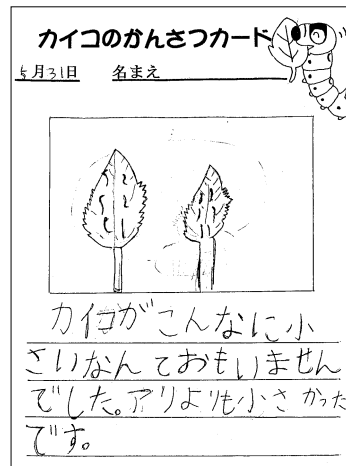 カイコのかんさつカード
5月31日 名まえ
カイコがこんなに小
さいなんておもいません
でした。アリよりも小さかった
です。